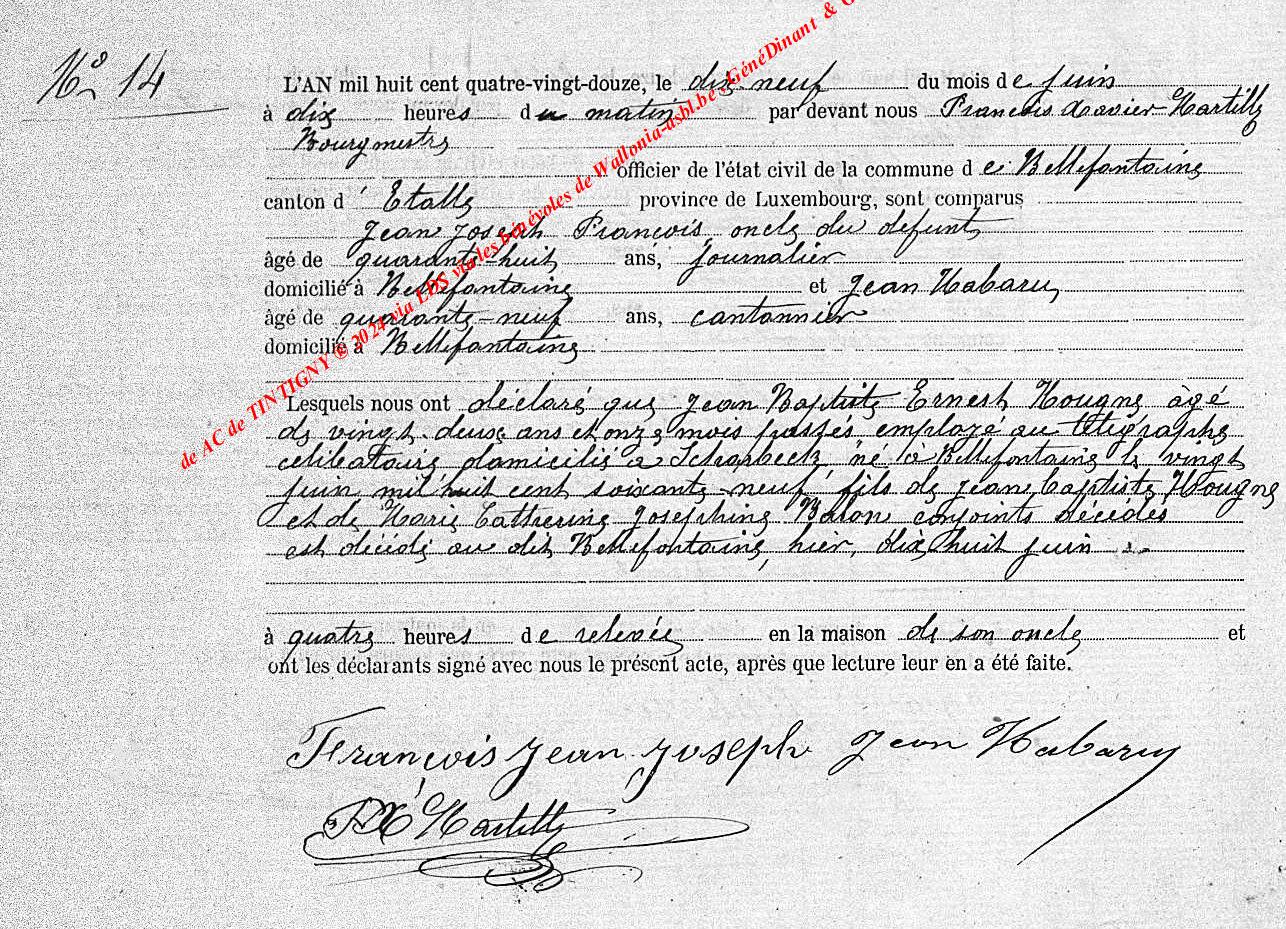 N° 14
L'AN mil huit cent quatre-vingt-douze, le dix-neuf du mois de Juin
à dix heures du matin par devant nous François Xavier Hartille
Bourgmestre
officier de l'état civil de la commune de Bellefontaine
canton d'Etalle province de Luxembourg, sont comparus
Jean Joseph François, oncle du defunt
âgé de quarante-huit ans, journalier
domicilié à Bellefontaine et Jean Habaru,
âgé de quarante-neuf ans, cantonnier
domicilié à Bellefontaine
Lesquels nous ont déclaré que Jean Baptiste Ernest Hougne âgé
de vingt-deux ans et onze mois passés employé au télégraphe
célibataire domicilié à Scharbeeck né à Bellefontaine le vingt
juin mil huit cent soixante-neuf fils de Jean Baptiste Hougne
et de Marie Catherine Josephine Balon conjoints décédés
est décédé au dit Bellefontaine, hier, dix huit juin
à quatre heures de relevée en la maison de son oncle et
ont les déclarants signé avec nous le présent acte, après que lecture leur en a été faite.
François Jean Joseph Jean Habaru
FX Hartille
de AC de TINTIGNY © 2024 via LDS via les bénévoles de Wallonia-asbl.be - GénéDinant &